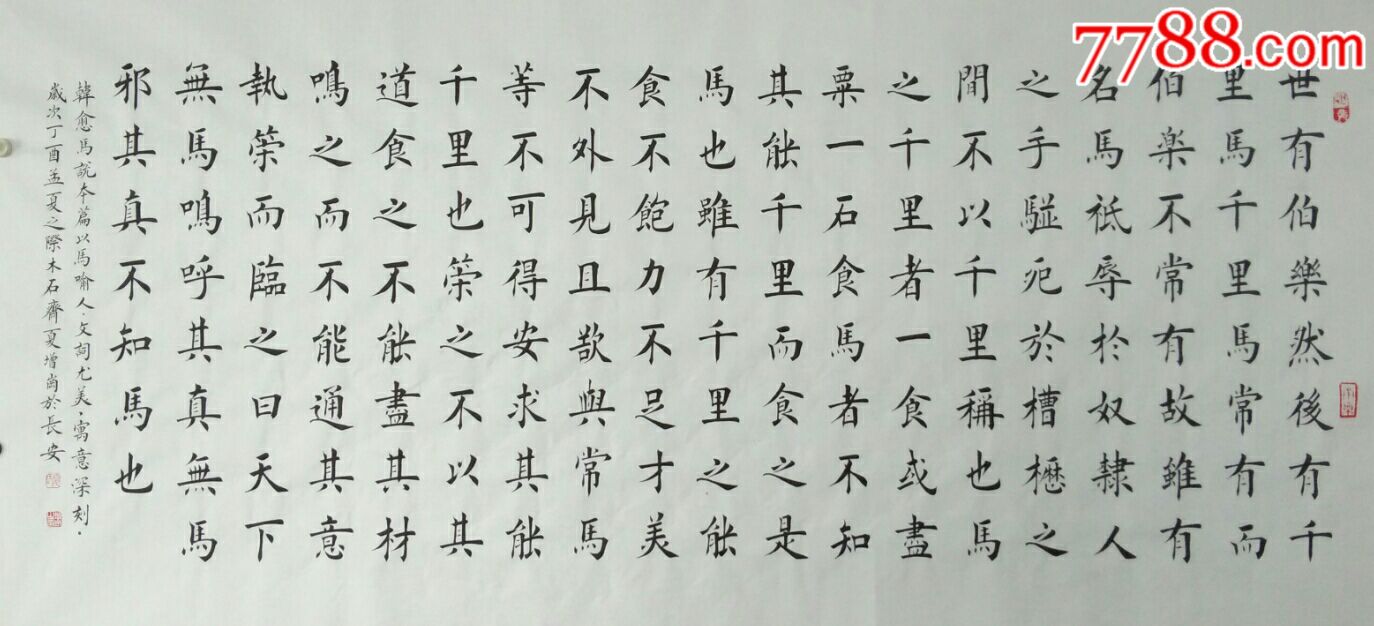 7788.com
世有伯樂然後有千
里馬千里馬常有而
伯楽不常有故雖有
名馬祗辱於奴隸人
之手駢死於槽櫪之
間不以千里稱也馬
之千里者一食或盡
粟一石食馬者不知
其能千里而食之是
馬也雖有千里之能
食不飽力不足才美
不外見且欲與常馬
等不可得安求其能
千里也策之不以其
道食之不能盡其材
鳴之而不能通其意
執策而臨之曰天下
無馬鳴呼其真無馬
邪其真不知馬也
韓愈馬說本篇以馬喻人．文詞尤美．寓意深刻．
歲次丁酉孟夏之際木石齋夏增尚於長安